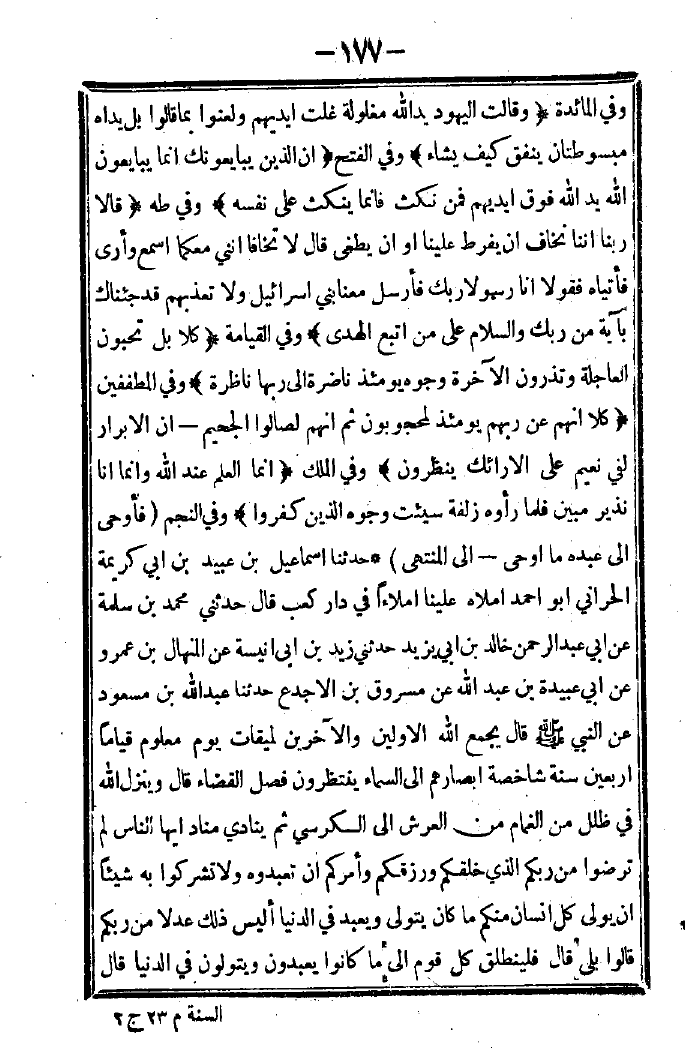 -١٧٧-
وفي المائدة ﴿ وقالت اليهود يدالله مغلولة غلت ايديهم ولعنوا بماقالوا بل يداه
مبسوطتان ينفق كيف يشاء ﴾ وفي الفتح﴿ ان الذين يبايعونك انما يبايعون
الله يد الله فوق ايديهم فمن نكث فانما ينكث على نفسه ﴾ وفي طه ﴿ قالا
ربنا اننا نخاف ان يفرط علينا او ان يطغى قال لا تخافا انني معكما اسمع وأرى
فأتياه فقولا انا رسولاربك فأرسل معنابني اسرائيل ولا تعذبهم قدجئناك
بآية من ربك والسلام على من اتبع الهدى ﴾ وفي القيامة ﴿ كلا بل تحبون
العاجلة وتذرون الآخرة وجوه يومئذ ناضرة الى ربها ناظرة ﴾ وفي المطففين
﴿ كلا انهم عن ربهم يومئذ لمحجوبون ثم انهم لصالوا الجحيم — ان الابرار
لفي نعيم على الارائك ينظرون ﴾ وفي الملك ﴿ انما العلم عند الله وانما انا
نذير مبين فلما رأوه زلفة سيئت وجوه الذين كفروا ﴾ وفي النجم ( فأوحى
الى عبده ما اوحى — الى المنتهى ) *حدثنا اسماعيل بن عبيد بن ابي كريمة
الحراني ابو احمد املاه علينا املاءاً في دار كعب قال حدثني محمد بن سلمة
عن ابي عبدالرحمن خالد بن ابي يزيد حدثني زيد بن ابى انيسة عن المنهال بن عمرو
عن ابي عبيدة بن عبد الله عن مسروق بن الاجدع حدثنا عبدالله بن مسعود
عن النبي ﷺ قال يجمع الله الاولين والآخرين لميقات يوم معلوم قياماً
اربعين سنة شاخصة ابصارهم الى السماء ينتظرون فصل القضاء قال وينزل الله
في ظلل من الغمام من العرش الى الكرسي ثم ينادي مناد ايها الناس لم
ترضوا من ربكم الذي خلقكم ورزقكم وأمركم ان تعبدوه ولا تشركوا به شيئاً
ان يولى كل انسان منكم ما كان يتولى ويعبد في الدنيا أليس ذلك عدلا من ربكم
قالوا بلى قال فلينطلق كل قوم الى ما كانوا يعبدون ويتولون في الدنيا قال
السنة م ٢٣ ج ٢